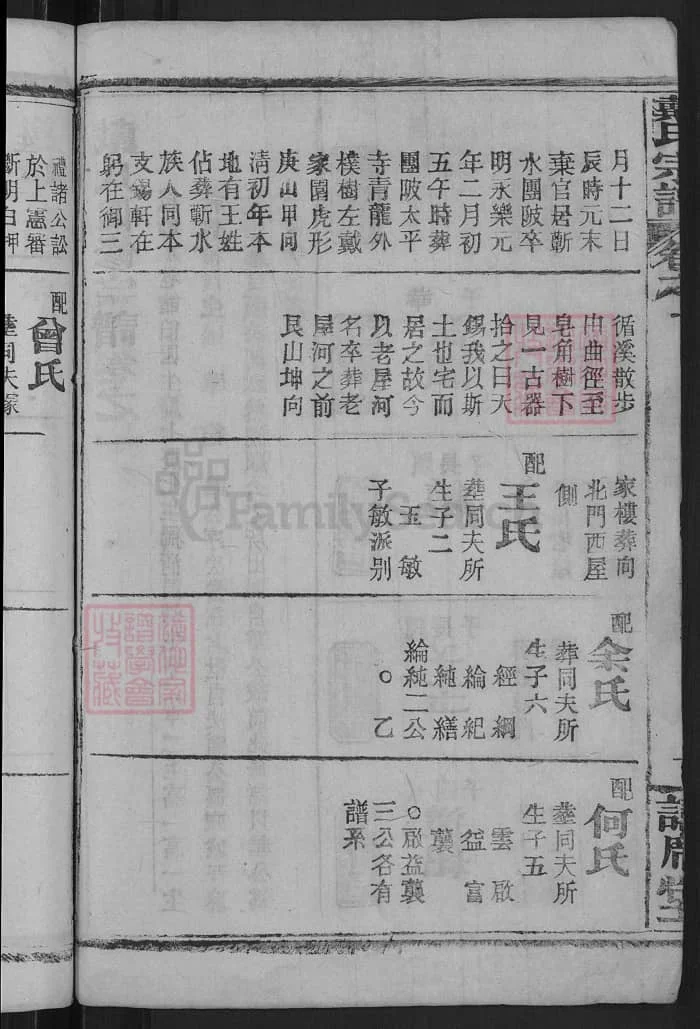 戴氏宗譜
月十二日
辰時元末
棄官居蘄
水團陂卒
明永樂元
年二月初
五午時葬
團陂太平
寺青龍外
樸樹左戴
家園虎形
庚山甲向
清初年本
地有王姓
佔葬蘄水
族人同本
支錫軒在
躬在御三
循溪散步
由曲徑至
皂角樹下
見一古器
拾之曰天
錫我以斯
土也宅而
居之故今
以老屋河
名卒葬老
屋河之前
艮山坤向
家樓葬向
北門西屋
側
配王氏
塟同夫所
生子二
玉 敏
子敏派别
配余氏
葬同夫所
生子六
經 綱
綸 紀
純 繕
綸純二公
○ 乙
配何氏
塟同夫所
生子五
雲 啟
益 富
襲
○啟益襲
三公各有
譜系
禮諸公訟
於上憲審
斷明白押
配曾氏
塟同夫冢
FamilySearch